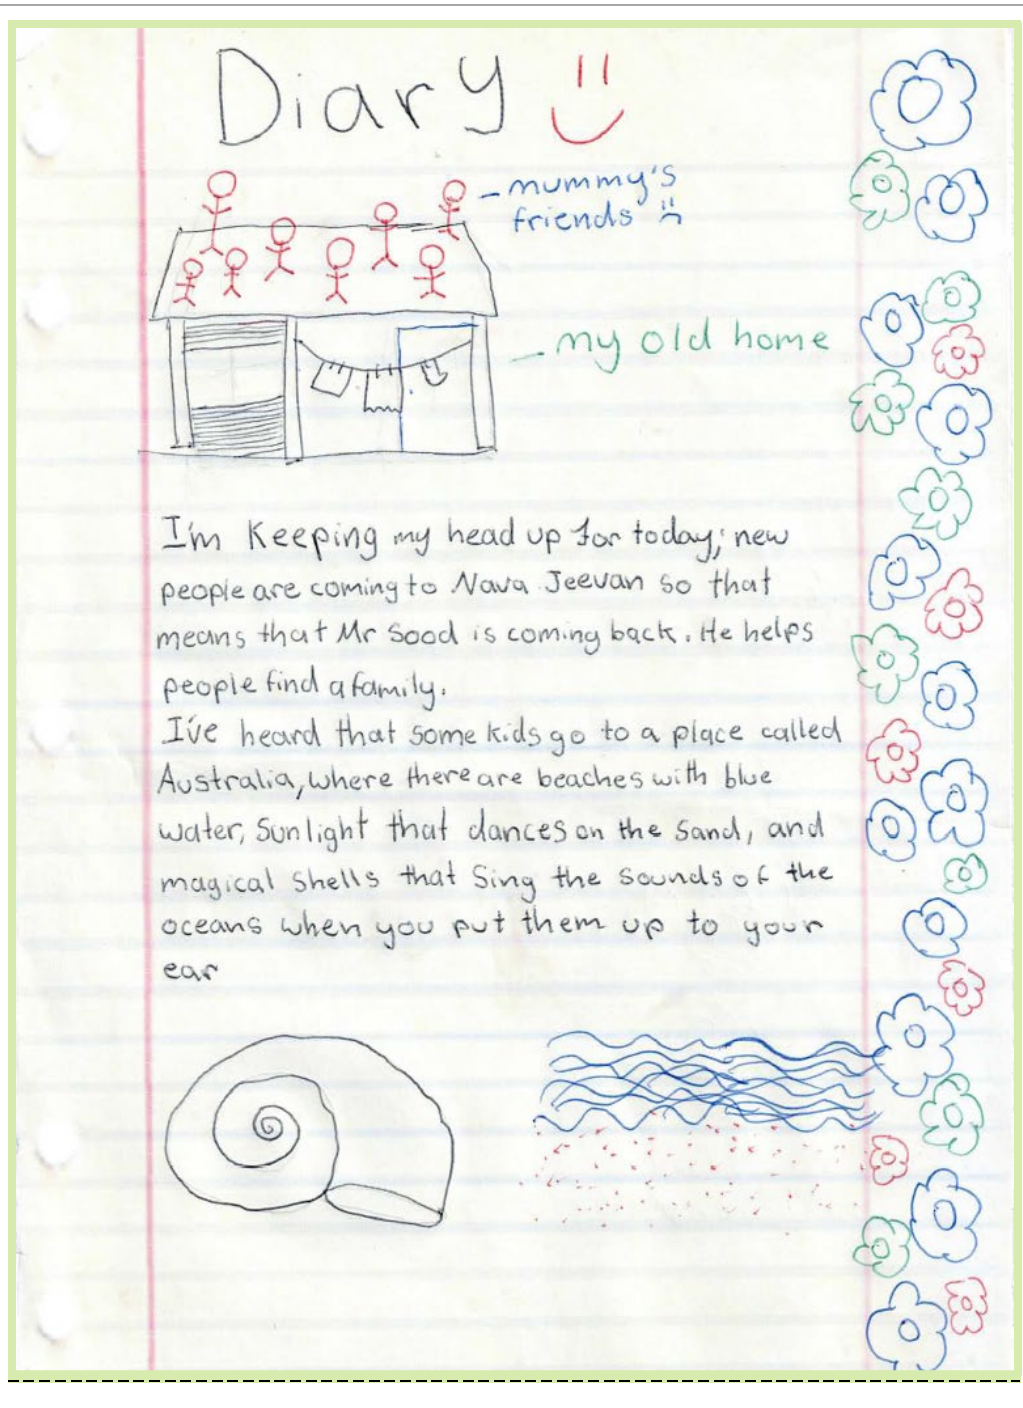 Diary
mummy's
friends
my old home
I'm Keeping my head up for today; new
people are coming to Nava Jeevan so that
means that Mr Sood is coming back. He helps
people find a family.
I've heard that some kids go to a place called
Australia, where there are beaches with blue
water, sunlight that dances on the sand, and
magical shells that sing the sounds of the
oceans when you put them up to your
ear